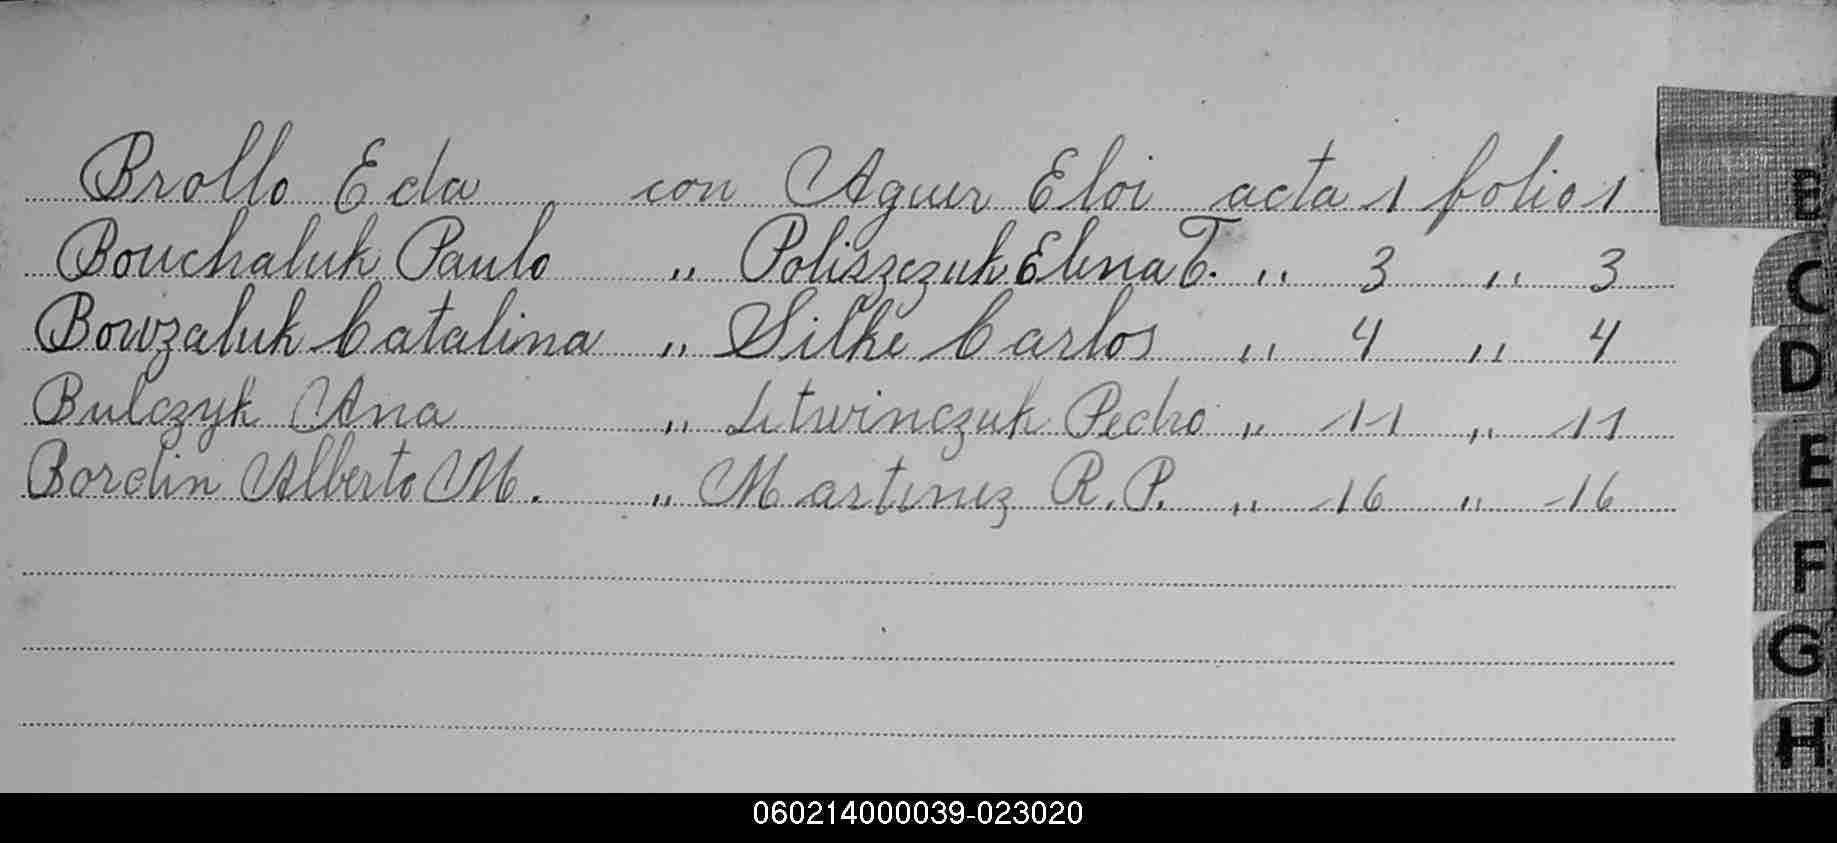 Brollo Eda con Aguer Eloi acta 1 folio 1
Bouchaluk Paulo " Poliszczuk Elena T. " 3 " 3
Bowzaluk Catalina " Silke Carlos " 4 " 4
Bulczyk Ana " Litwinczuk Pedro " 11 " 11
Bordin Alberto M. " Martinez R. P. " 16 " 16
B
C
D
E
F
G
H
060214000039-023020